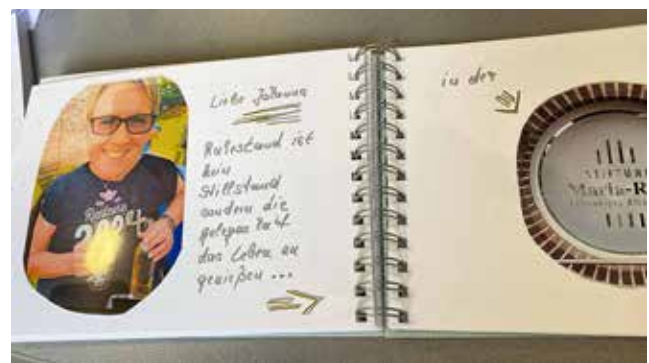 Liebe Johanna
Ruhestand ist
kein
Stillstand
sondern die
gelegene Zeit
das Leben zu
genießen ...
in der
STIFTUNG
Maria-R